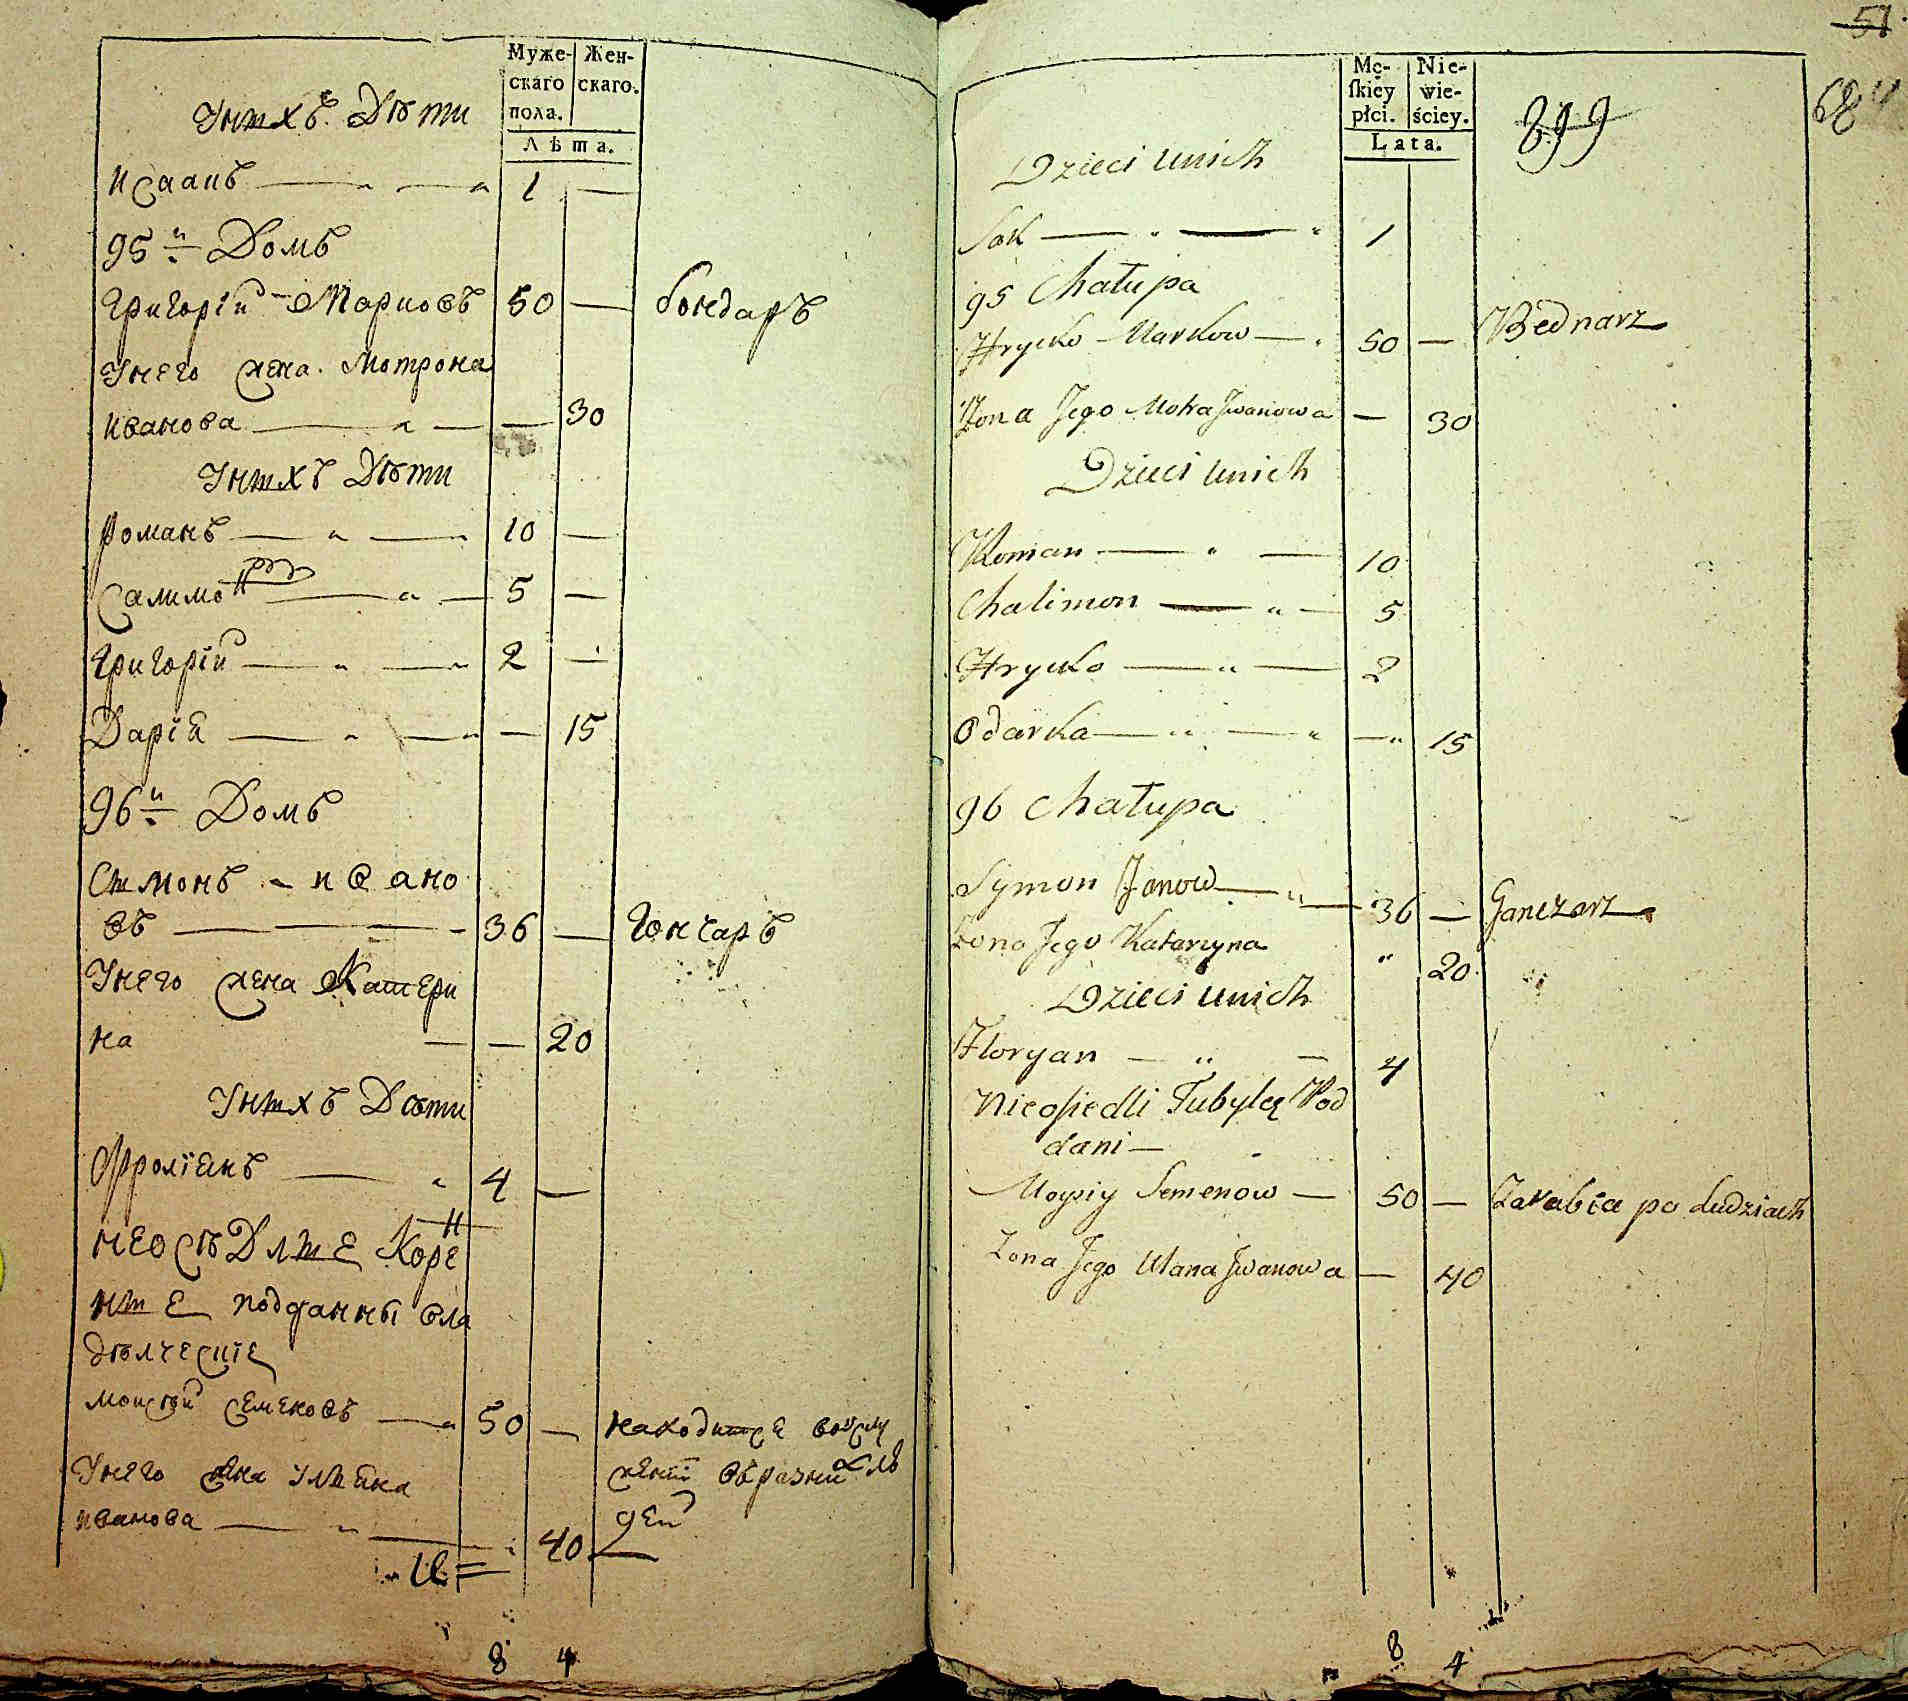 Муже- Жен-
скаго скаго.
пола.
Лѣта.
Унихъ Дѣти
Исаакъ — „ — „ 1 —
95 й Домъ
Григорій Марковъ 50 — бондаръ
Унего жена Мотрона
иванова — „ — — 30
Унихъ Дѣти
романъ — „ — 10 —
Салимон — „ — 5 —
Григорій — „ — 2 —
Дарія — „ — „ — 15
96 й Домъ
Симонъ - ивано
въ — 36 — Гончаръ
Унего жена Катери
на — — 20
Унихъ Дѣти
Фроліянъ — „ 4 —
неосѣдлие Корен
ние подданны вла
дѣлческіе
моисѣй семеновъ — „ 50 — находитсе
Унего жена Уляна
иванова — „ — 40 — дей
8 4
51
Mę- Nie-
skiey wie-
płci. ściey.
Lata.
899
68
Dzieci unich
Sak — „ — „ 1
95 Chałupa
Hrycko Markow — „ 50 — Bednarz
Żona Jego Motra Jwanowa — 30
Dzieci unich
Roman — „ — 10
Chalimon — „ — 5
Hrycko — „ — 2
Odarka — „ — „ — „ 15
96 Chałupa
Symon Janow — „ — 36 — Ganczarz
Żona Jego Katarzyna „ 20
Dzieci unich
Floryan — „ — 4
Nieosiedli Tubylcy Pod
dani —
Moysiy Semenow — 50 — Zarabia po ludziach
Żona Jego Ulana Jwanowa — 40
8 4